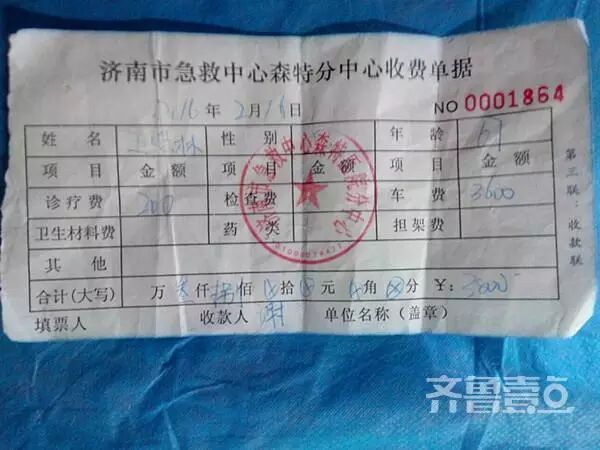 济南市急救中心森特分中心收费单据
2016年2月16日 NO 0001864
姓名 性别 年龄 61
项目 金额 项目 金额 项目 金额
诊疗费 200 检查费 车费 3600
卫生材料费 药类 担架费
其他
合计(大写) 万 仟 佰 拾 元 角 分 ¥:
填票人 收款人 谢 单位名称(盖章)
第三联:收款联
齐鲁壹点